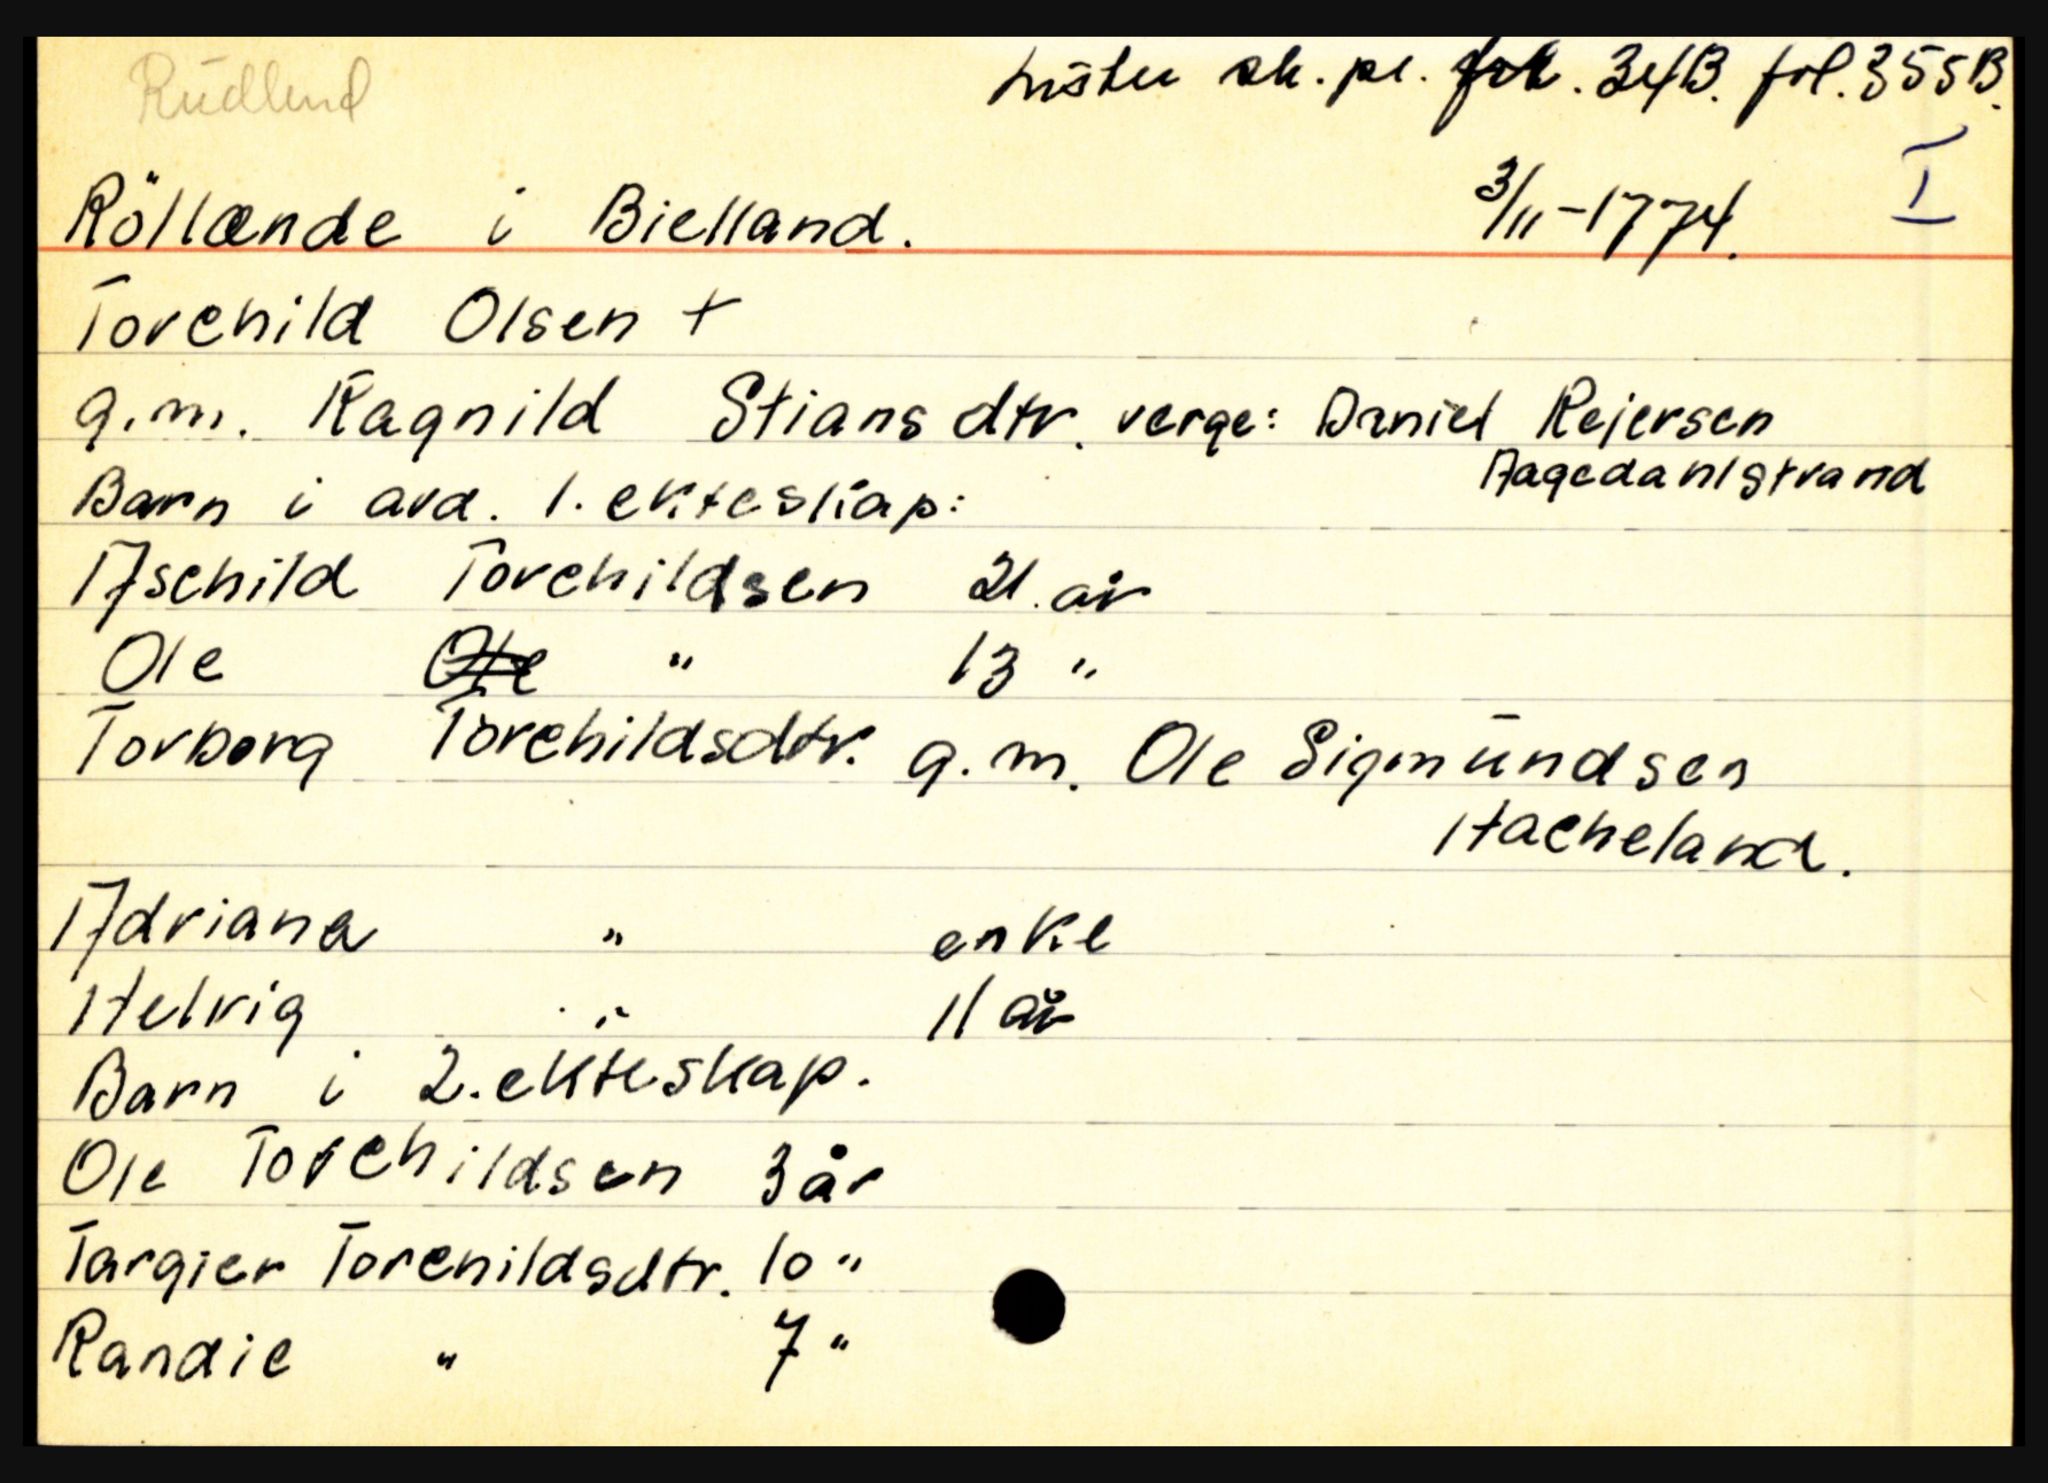 Rudlend
Lister sk. pr. 34B. fol. 355B.
I
Röllænde i Bielland. 3/11-1774.
Torchild Olsen +
g.m. Ragnild Stiansdtr. verge: Daniel Rejersen
Aagedahlstrand
Barn i avd. 1. ekteskap:
Aschild Torchildsen 21. år
Ole Ole " 13 "
Torborg Torchildsdtr. g.m. Ole Sigmundsen
Hacheland.
Adriana " enke
Helvig " 11 år
Barn i 2. ekteskap.
Ole Torchildsen 3 år
Targier Torchildsdtr. 10 "
Randie " 7 "